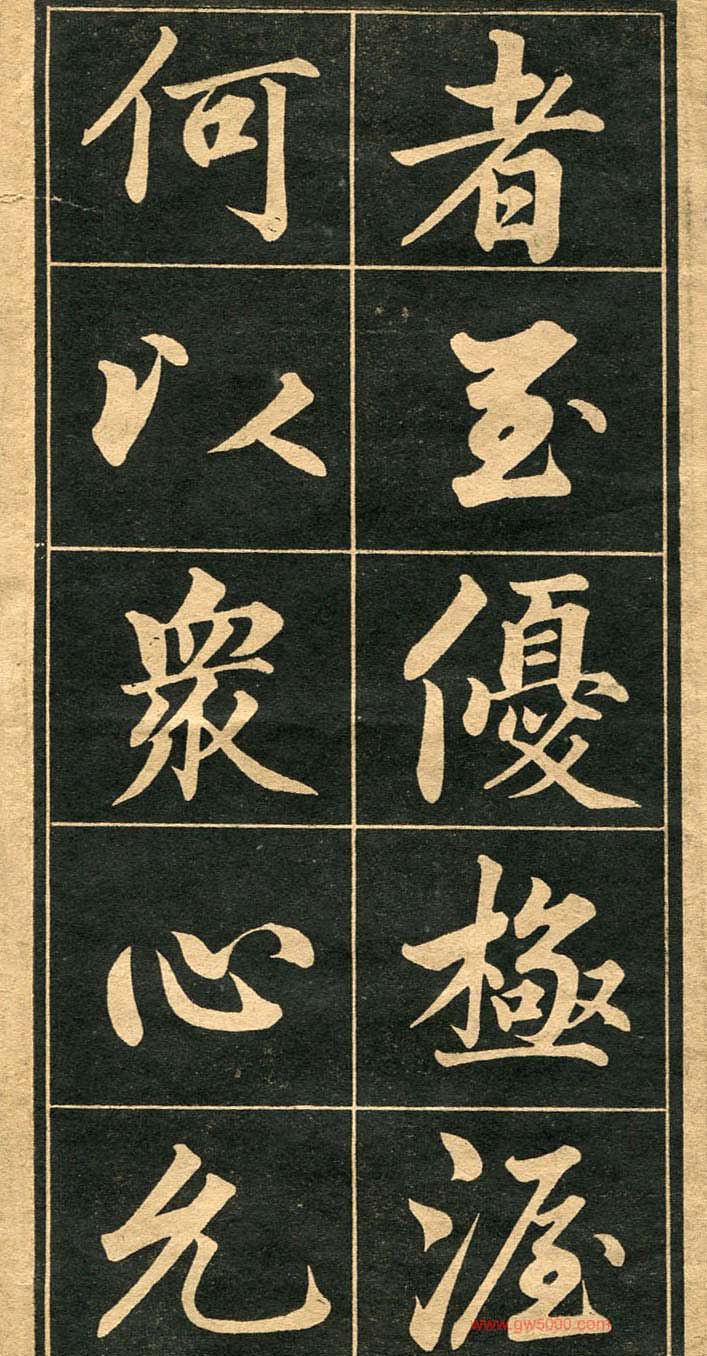 者至優極渥
何以衆心允
www.gw5000.com